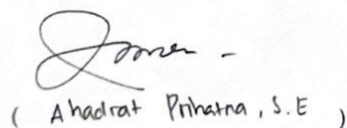 ( Ahadrat Prihatna, S.E )